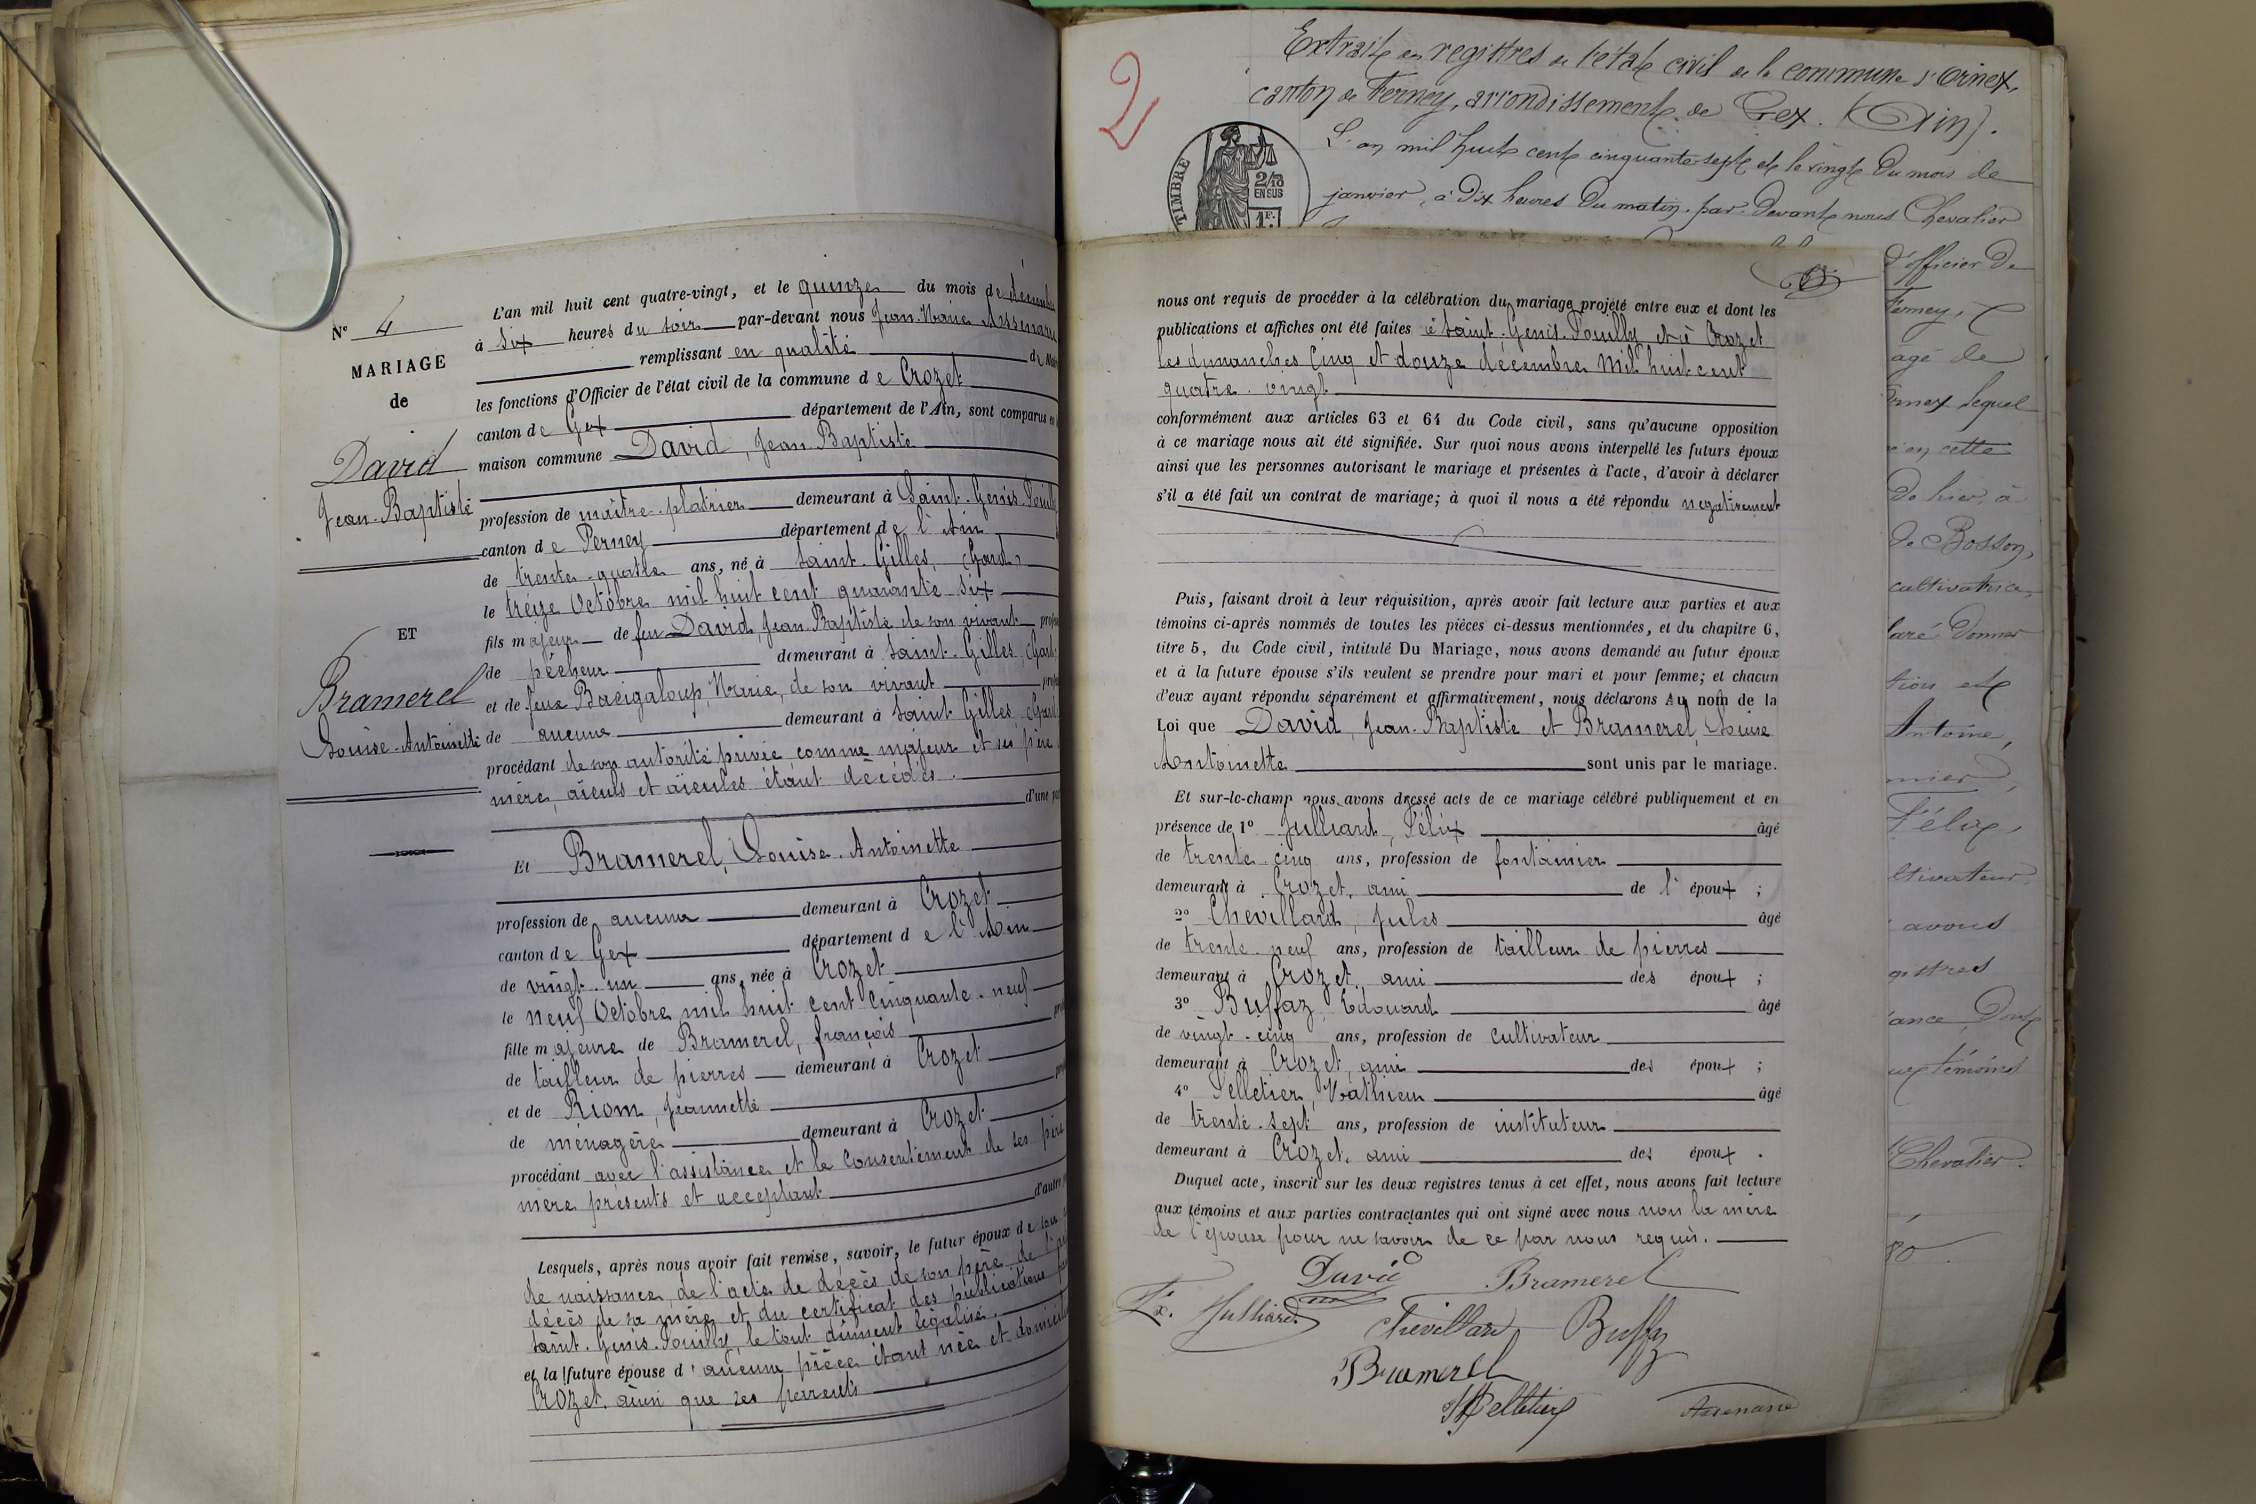 N° 4
MARIAGE
de
David
Jean-Baptiste
ET
Bramerel
Louise-Antoinette
L'an mil huit cent quatre-vingt, et le quinze du mois de décembre
à six heures du soir par-devant nous Jean-Marie
remplissant en qualité de
les fonctions d'Officier de l'état civil de la commune de Crozet
canton de Gex département de l'Ain, sont comparus en
maison commune David, Jean-Baptiste
profession de maître-platrier demeurant à Saint-Genis-Pouilly
canton de Ferney département de l'Ain
de trente-quatre ans, né à Saint-Gilles, (Gard)
le treize Octobre mil huit cent quarante-six
fils majeur de feu David, Jean-Baptiste de son vivant
de pêcheur demeurant à Saint-Gilles, (Gard)
et de feue Bacigaloup, Marie, de son vivant
de aucune demeurant à Saint-Gilles, (Gard)
procédant de son autorité privée comme majeur et ses père
mère, aïeuls et aïeules étant décédés.
d'une part
Et Bramerel, Louise-Antoinette
profession de aucune demeurant à Crozet
canton de Gex département de l'Ain
de vingt-un ans, née à Crozet
le neuf Octobre mil huit cent cinquante-neuf
fille majeure de Bramerel, françois
de tailleur de pierres demeurant à Crozet
et de Riom, Jeannette
de ménagère demeurant à Crozet
procédant avec l'assistance et le consentement de ses père
mère présents et acceptant
d'autre
Lesquels, après nous avoir fait remise, savoir, le futur époux de son
de naissance, de l'acte de décès de son père, de
décès de sa mère et du certificat des publications
saint-Genis-Pouilly, le tout dûment légalisé.
et la future épouse d'aucune pièce étant née et
Crozet, ainsi que ses parents
2
Extrait des registres de l'état civil de la commune d'Ornex,
canton de Ferney, arrondissement de Gex. (Ain).
L'an mil huit cent cinquante-sept et le vingt du mois de
janvier, à dix heures du matin, par devant nous Chevalier
TIMBRE
2/10
EN SUS
1F.
nous ont requis de procéder à la célébration du mariage projeté entre eux et dont les
publications et affiches ont été faites à Saint-Genis-Pouilly et à Crozet
les dimanches cinq et douze décembre mil huit cent
quatre-vingt
conformément aux articles 63 et 64 du Code civil, sans qu'aucune opposition
à ce mariage nous ait été signifiée. Sur quoi nous avons interpellé les futurs époux
ainsi que les personnes autorisant le mariage et présentes à l'acte, d'avoir à déclarer
s'il a été fait un contrat de mariage; à quoi il nous a été répondu négativement
Puis, faisant droit à leur réquisition, après avoir fait lecture aux parties et aux
témoins ci-après nommés de toutes les pièces ci-dessus mentionnées, et du chapitre 6,
titre 5, du Code civil, intitulé Du Mariage, nous avons demandé au futur époux
et à la future épouse s'ils veulent se prendre pour mari et pour femme; et chacun
d'eux ayant répondu séparément et affirmativement, nous déclarons Au nom de la
Loi que David, Jean-Baptiste et Bramerel, Louise
Antoinette sont unis par le mariage.
Et sur-le-champ nous avons dressé acte de ce mariage célébré publiquement et en
présence de 1° Julliard, Félix âgé
de trente-cinq ans, profession de fontainier
demeurant à Crozet, ami de l'époux ;
2° Chevillard, Jules âgé
de trente-neuf ans, profession de tailleur de pierres
demeurant à Crozet, ami des époux ;
3° Buffaz, Edouard âgé
de vingt-cinq ans, profession de cultivateur
demeurant à Crozet, ami des époux ;
4° Pelletier, Mathieu âgé
de trente-sept ans, profession de instituteur
demeurant à Crozet, ami des époux .
Duquel acte, inscrit sur les deux registres tenus à cet effet, nous avons fait lecture
aux témoins et aux parties contractantes qui ont signé avec nous non la mère
de l'épouse pour ne savoir de ce par nous requis.
David Bramerel
Fx. Julliard Chevillard Buffaz
Bramerel
Pelletier
d'officier de
Ferney,
agé de
Ornex lequel
en cette
de hier, à
de Bosson,
cultivatrice,
laré donner
tion et
Antoine,
mier,
Félix,
ltivateur
avons
gistres
ance, Dont
ux témoins
Chevalier.
80